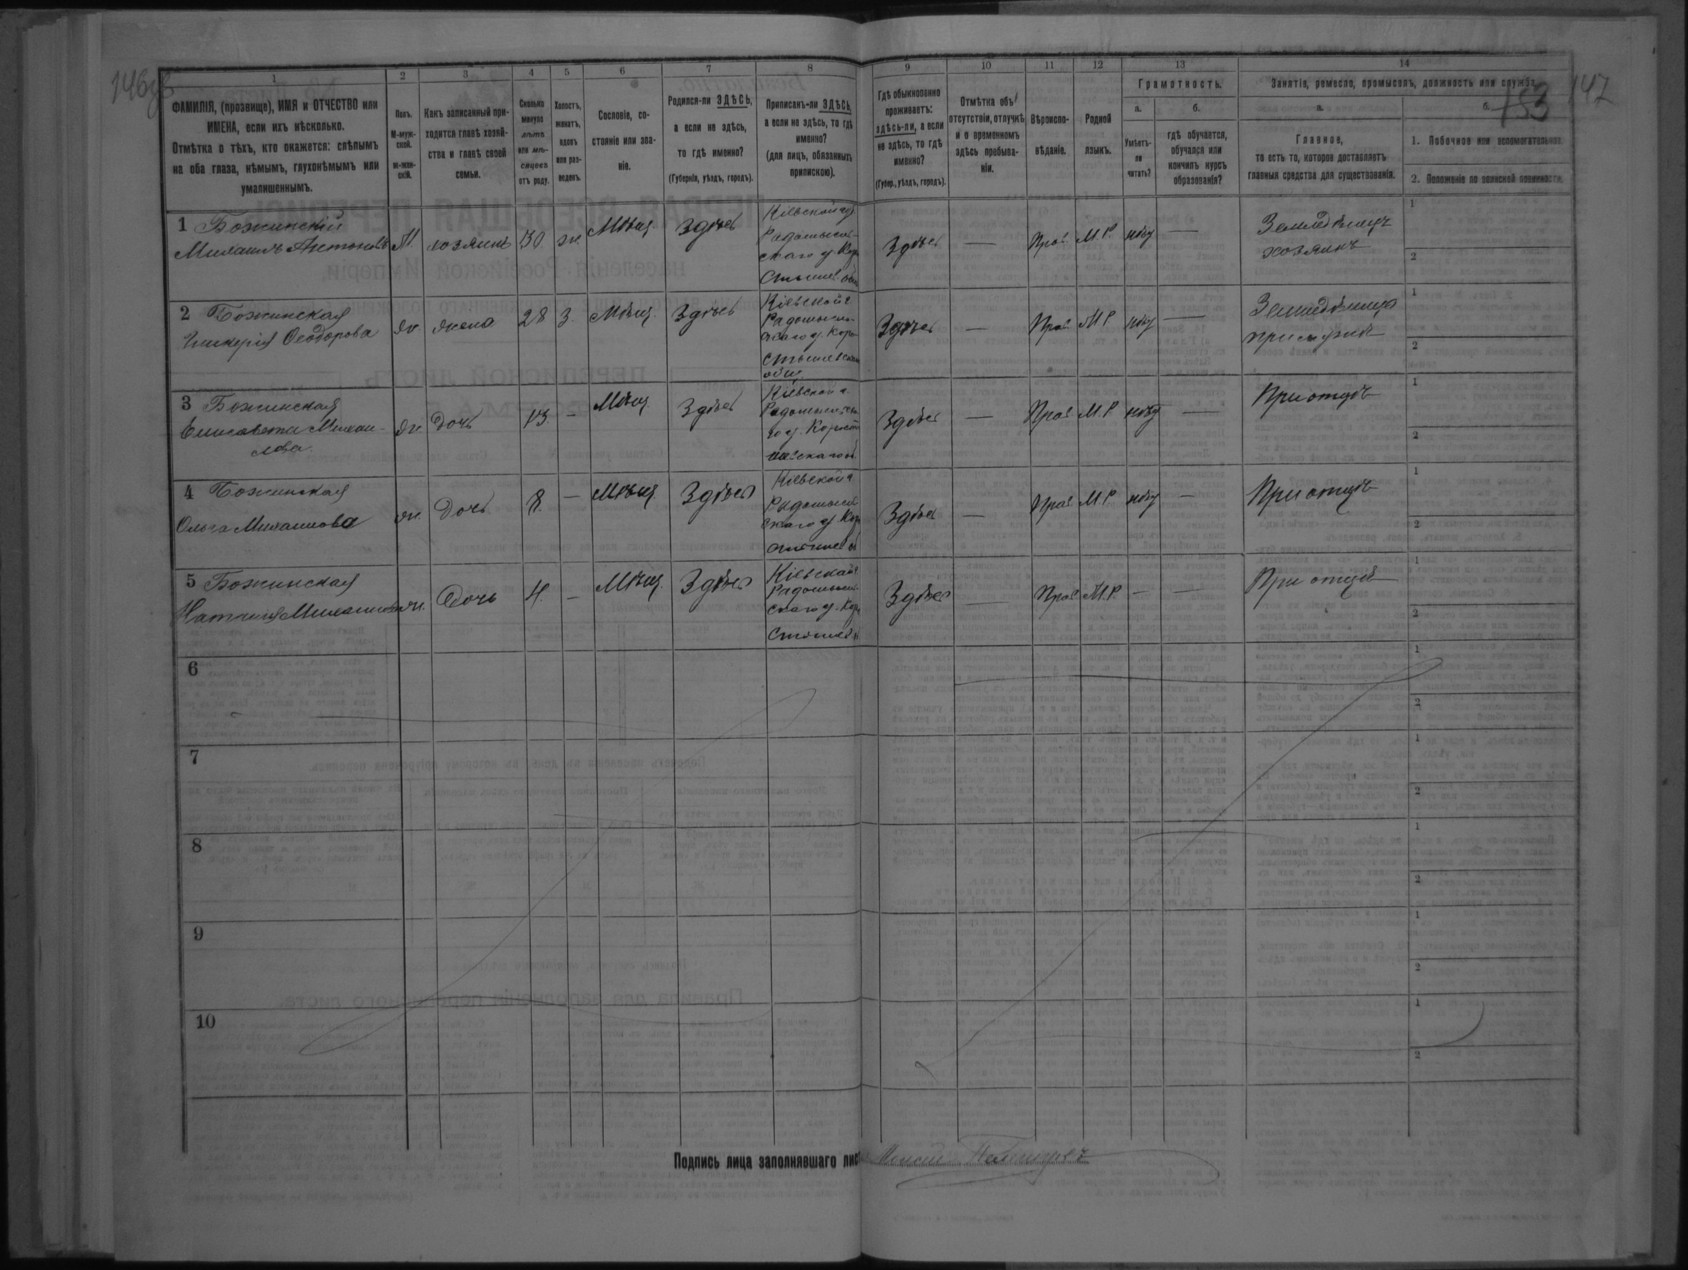 146об
147
153
1 2 3 4 5 6 7 8 9 10 11 12 13 14
ФАМИЛІЯ, (прозвище), ИМЯ и ОТЧЕСТВО или
ИМЕНА, если ихъ нѣсколько.
Отмѣтка о тѣхъ, кто окажется: слѣпымъ
на оба глаза, нѣмымъ, глухонѣмымъ или
умалишеннымъ.
Полъ.
М-муж-
ской.
ж-жен-
скій.
Какъ записанный при-
ходится главѣ хозяй-
ства и главѣ своей
семьи.
Сколько
минуло
лѣтъ
или мѣ-
сяцевъ
отъ роду.
Холостъ,
женатъ,
вдовъ
или раз-
веденъ.
Сословіе, со-
стояніе или зва-
ніе.
Родился-ли ЗДѢСЬ,
а если не здѣсь,
то гдѣ именно?
(Губернія, уѣздъ, городъ).
Приписанъ-ли ЗДѢСЬ,
а если не здѣсь, то гдѣ
именно?
(для лицъ, обязанныхъ
припискою).
Гдѣ обыкновенно
проживаетъ:
здѣсь-ли, а если
не здѣсь, то гдѣ
именно?
(Губер., уѣздъ, городъ).
Отмѣтка объ
отсутствіи, отлучкѣ
и о временномъ
здѣсь пребыва-
ніи.
Вѣроиспо-
вѣданіе.
Родной
языкъ.
Грамотность.
а.
Умѣетъ-
ли
читать?
б.
гдѣ обучается,
обучался или
кончилъ курсъ
образованія?
Занятіе, ремесло, промыселъ, должность или служба.
а.
Главное,
то есть то, которое доставляетъ
главныя средства для существованія.
б.
1. Побочное или вспомогательное.
2. Положеніе по воинской повинности.
1 Божинскій
Михаилъ Антоновъ
М хозяинъ 30 ж. Мѣщ. Здѣсь
Кіевской г.
Радомысль-
скаго у. Коро
Здѣсь — Прав. М.Р. нѣту —
Земледѣлецъ
хозяинъ
1
2
2 Божинская
Гликерія Ѳеодорова
ж. жена 28 З. Мѣщ. Здѣсь
Кіевской г.
Радомысль-
скаго у. Коро
стышевскаго
общ.
Здѣсь — Прав. М.Р. нѣту —
1
2
3 Божинская
Елисавета Михаи-
лова
ж. Дочь 13. — Мѣщ. Здѣсь
Кіевской г.
Здѣсь — Прав. М.Р. нѣту —
При отцѣ
1
2
4 Божинская
Ольга Михаилова
ж. Дочь 8. — Мѣщ. Здѣсь
Кіевской г.
Радомысль
скаго у. Коро
Здѣсь — Прав. М.Р. нѣту —
При отцѣ
1
2
5 Божинская
ж. Дочь 4. — Мѣщ. Здѣсь
Кіевской г.
Радомысль
скаго у. Коро
Здѣсь — Прав. М.Р. — —
При отцѣ
1
2
6
1
2
7
1
2
8
1
2
9
1
2
10
1
2
Подпись лица заполнявшаго лис